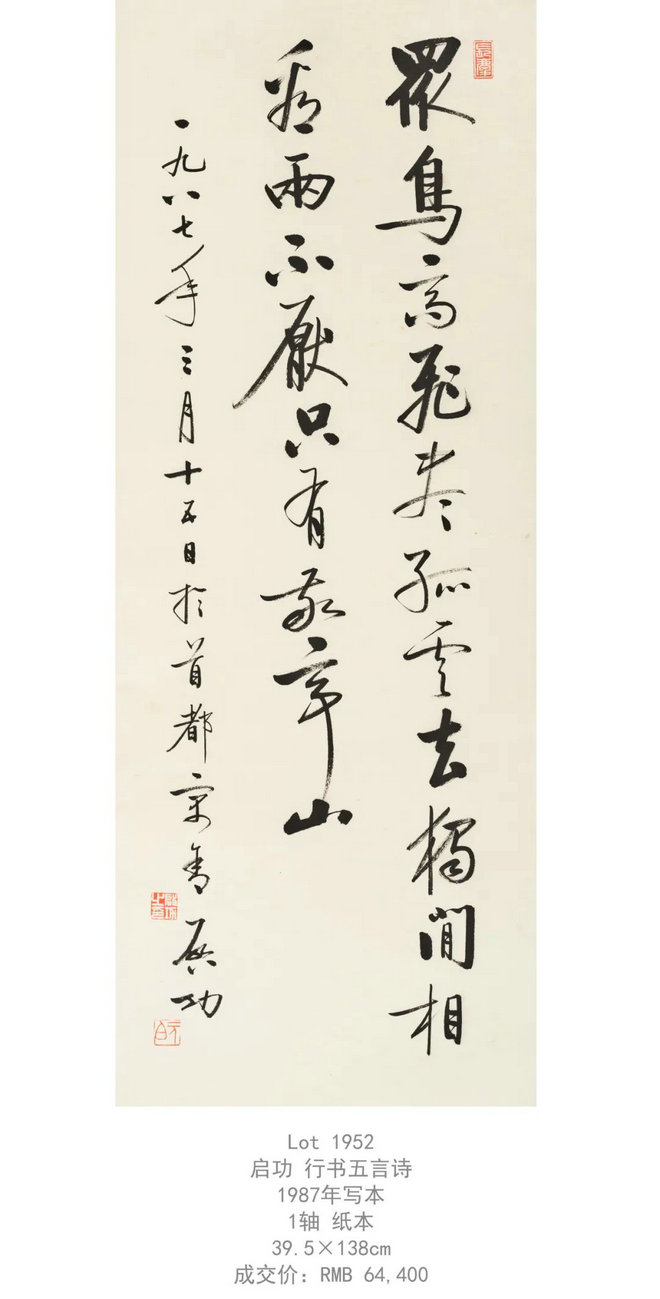 眾鳥高飛盡孤雲去獨閒相
看兩不厭只有敬亭山
一九八七年三月十五日於首都
啟功
啟功之印
元白
Lot 1952
启功 行书五言诗
1987年写本
1轴 纸本
39.5×138cm
成交价: RMB 64,400